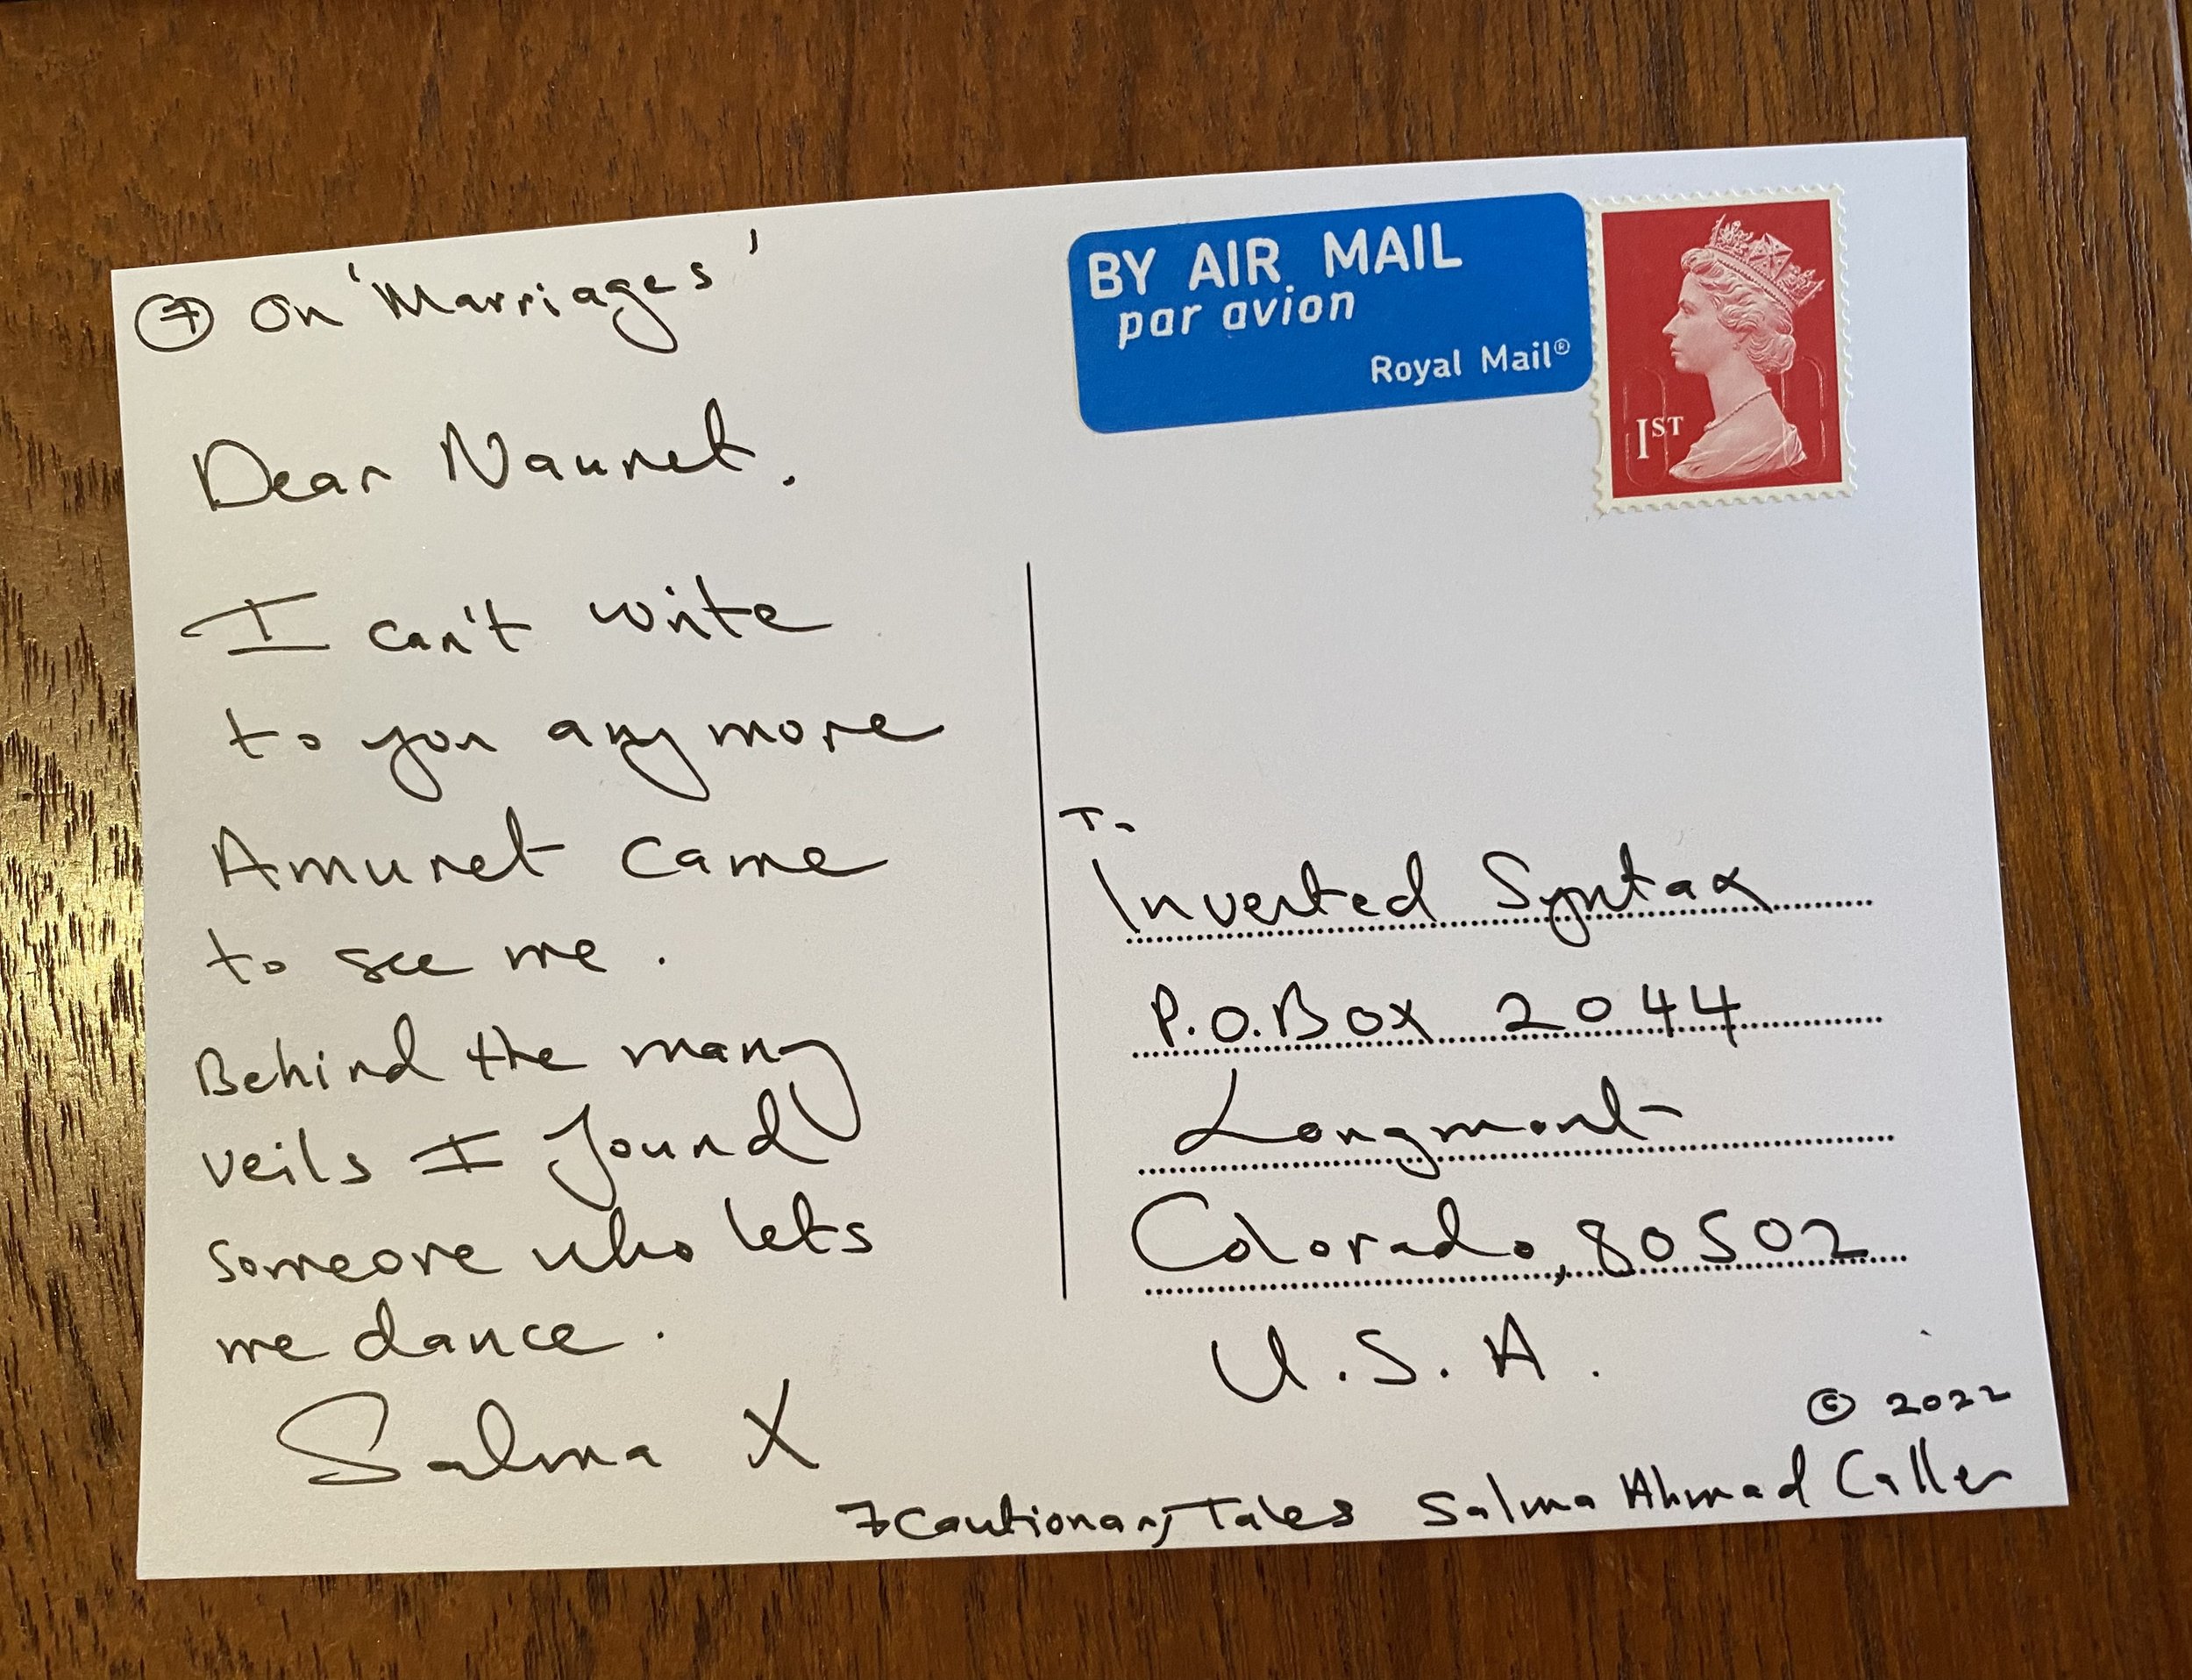 ⑦ On 'Marriages'
Dear Naunet.
I can't write
to you anymore
Amunet came
to see me.
Behind the many
veils I found
someone who lets
me dance.
Salma X
BY AIR MAIL
par avion
Royal Mail®
1ST
To
Inverted Syntax
P.O.Box 2044
Longmont
Colorado, 80502
U.S.A.
© 2022
7 Cautionary Tales Salma Ahmad Caller